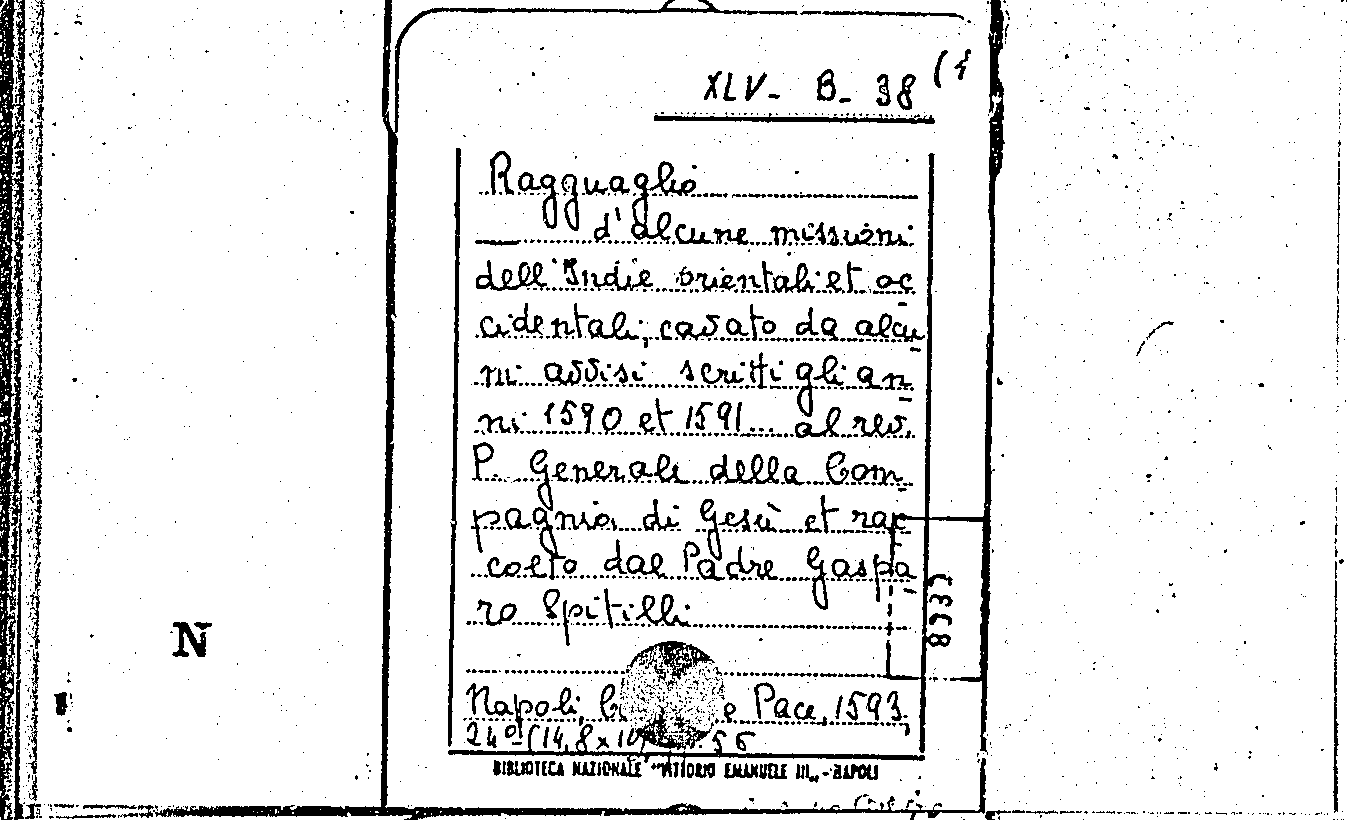 XLV- B- 38 (1
Ragguaglio
d'alcune missioni
dell'Indie orientali et oc
cidentali; cavato da alcu
ni avvisi scritti gli an
ni 1590 et 1591... al rev.
P. Generale della Com
pagnia di Gesù et rac
colto dal Padre Gaspa
ro Spitilli
Napoli, e Pace, 1593,
24º (14,8 x 56
BIBLIOTECA NAZIONALE "VITTORIO EMANUELE III" - NAPOLI
N